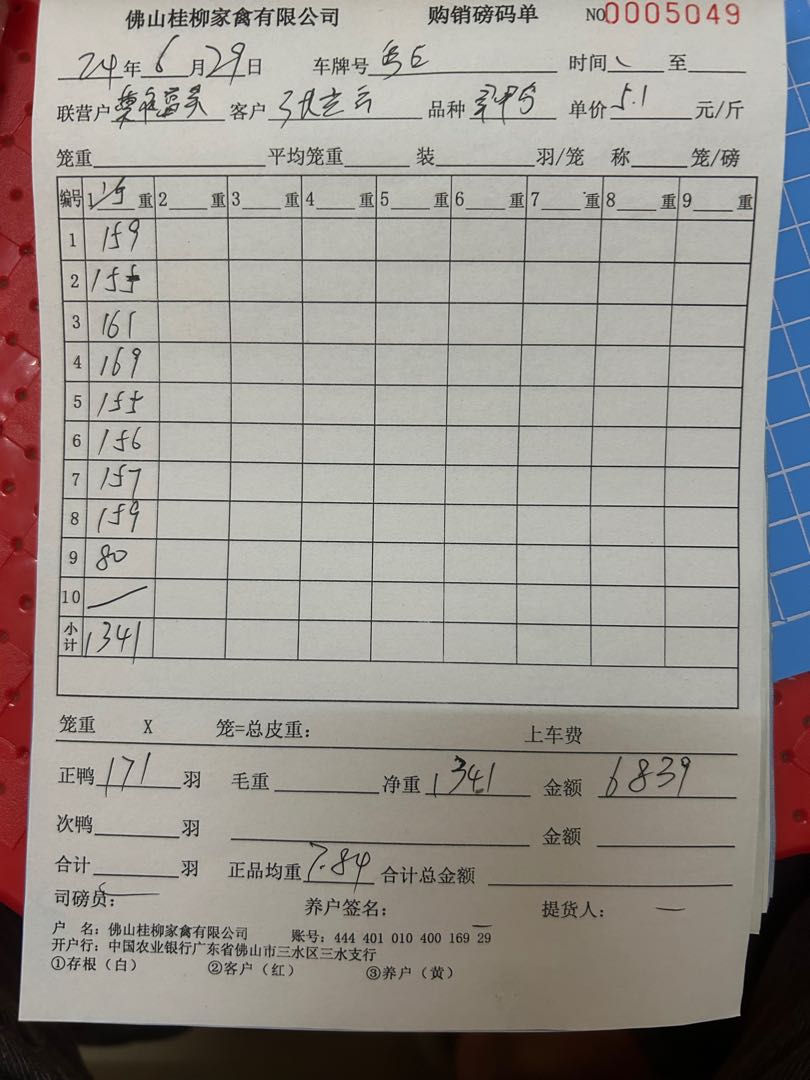 佛山桂柳家禽有限公司 购销磅码单 NO0005049
24年6月29日 车牌号 时间 至
联营户 客户 品种 单价5.1元/斤
笼重 平均笼重 装 羽/笼 称 笼/磅
编号 1 15 重 2 重 3 重 4 重 5 重 6 重 7 重 8 重 9 重
1 159
2 155
3 161
4 169
5 155
6 156
7 157
8 159
9 80
10
小计 1341
笼重 X 笼=总皮重: 上车费
正鸭171羽 毛重 净重1341 金额6839
次鸭 羽 金额
合计 羽 正品均重7.84 合计总金额
司磅员: 养户签名: 提货人:
户 名: 佛山桂柳家禽有限公司 账号: 444 401 010 400 169 29
开户行: 中国农业银行广东省佛山市三水区三水支行
①存根(白) ②客户(红) ③养户(黄)